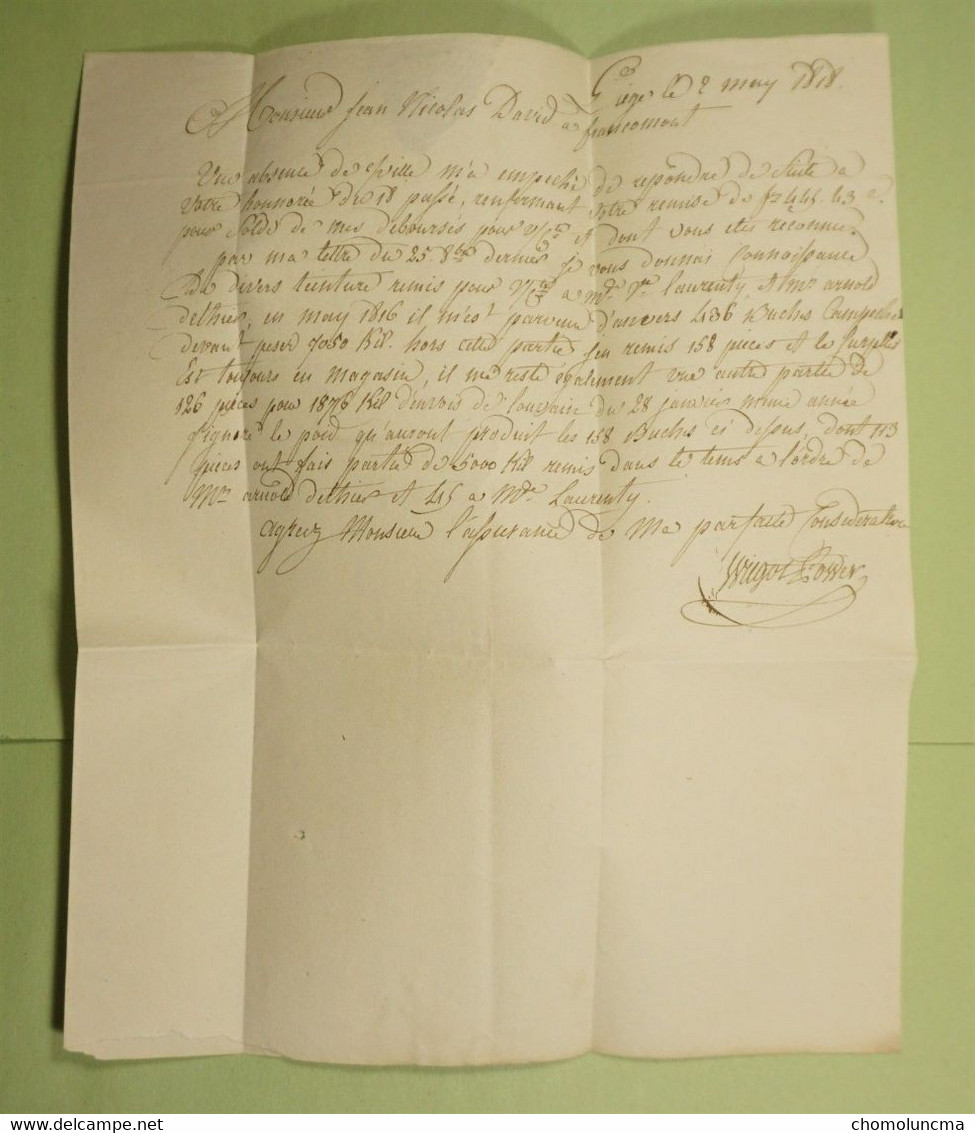 Liège le 2 may 1818.
Monsieur Jean Nicolas David a francomont
Une absence de Ville m'a empeché de repondre de Suite a
Votre honnorée du 18 passé, renfermant Votre remise de
pour Solde de mes deboursés pour et dont vous etes reconnu.
par ma lettre du 25. 8bre dernier je vous donnai Connoissance
de divers teinture remis pour a Mde. Ve. Laurenty, et Mr. arnold
dethier, en may 1816 il m'est parvenu d'anvers 436 Buches Campeche
devant peser 7050 Kil. hors cette partie j'en remis 158 pieces et le Surplus
Est toujours en Magasin, il me reste egalement une autre partie de
126 pieces pour 1876 Kil d'envois de Louvain du 28 janvier même année
J'ignore le poid qu'auront produit les 158 Buches ci dessus, dont 113
pieces ont fais partie de 5000 Kil remis dans le tems a l'ordre de
Mr. arnold dethier et 45 a Mde. Laurenty.
agreez Monsieur l'assurance de Ma parfaite Consideration
delcampe.net
chomoluncma